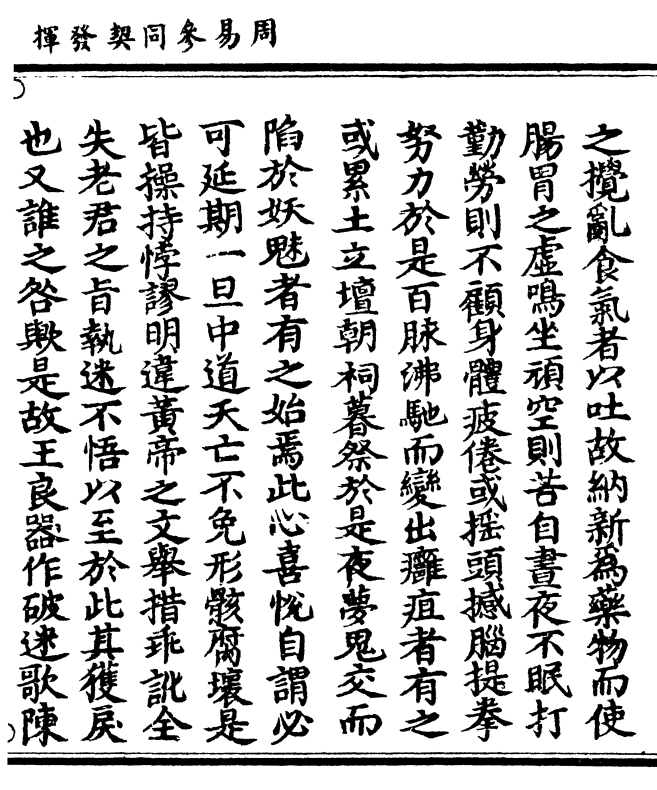 周易參同契發揮
之攪亂食氣者以吐故納新爲藥物而使
腸胃之虛鳴坐頑空則苦自晝夜不眠打
勤勞則不顧身體疲倦或搖頭撼腦提拳
努力於是百脉沸馳而變出癰疽者有之
或累土立壇朝祠暮祭於是夜夢鬼交而
陷於妖魅者有之始焉此心喜悅自謂必
可延期一旦中道夭亡不免形骸腐壞是
皆操持悖謬明違黃帝之文舉措乖訛全
失老君之旨執迷不悟以至於此其獲戾
也又誰之咎歟是故王良器作破迷歌陳